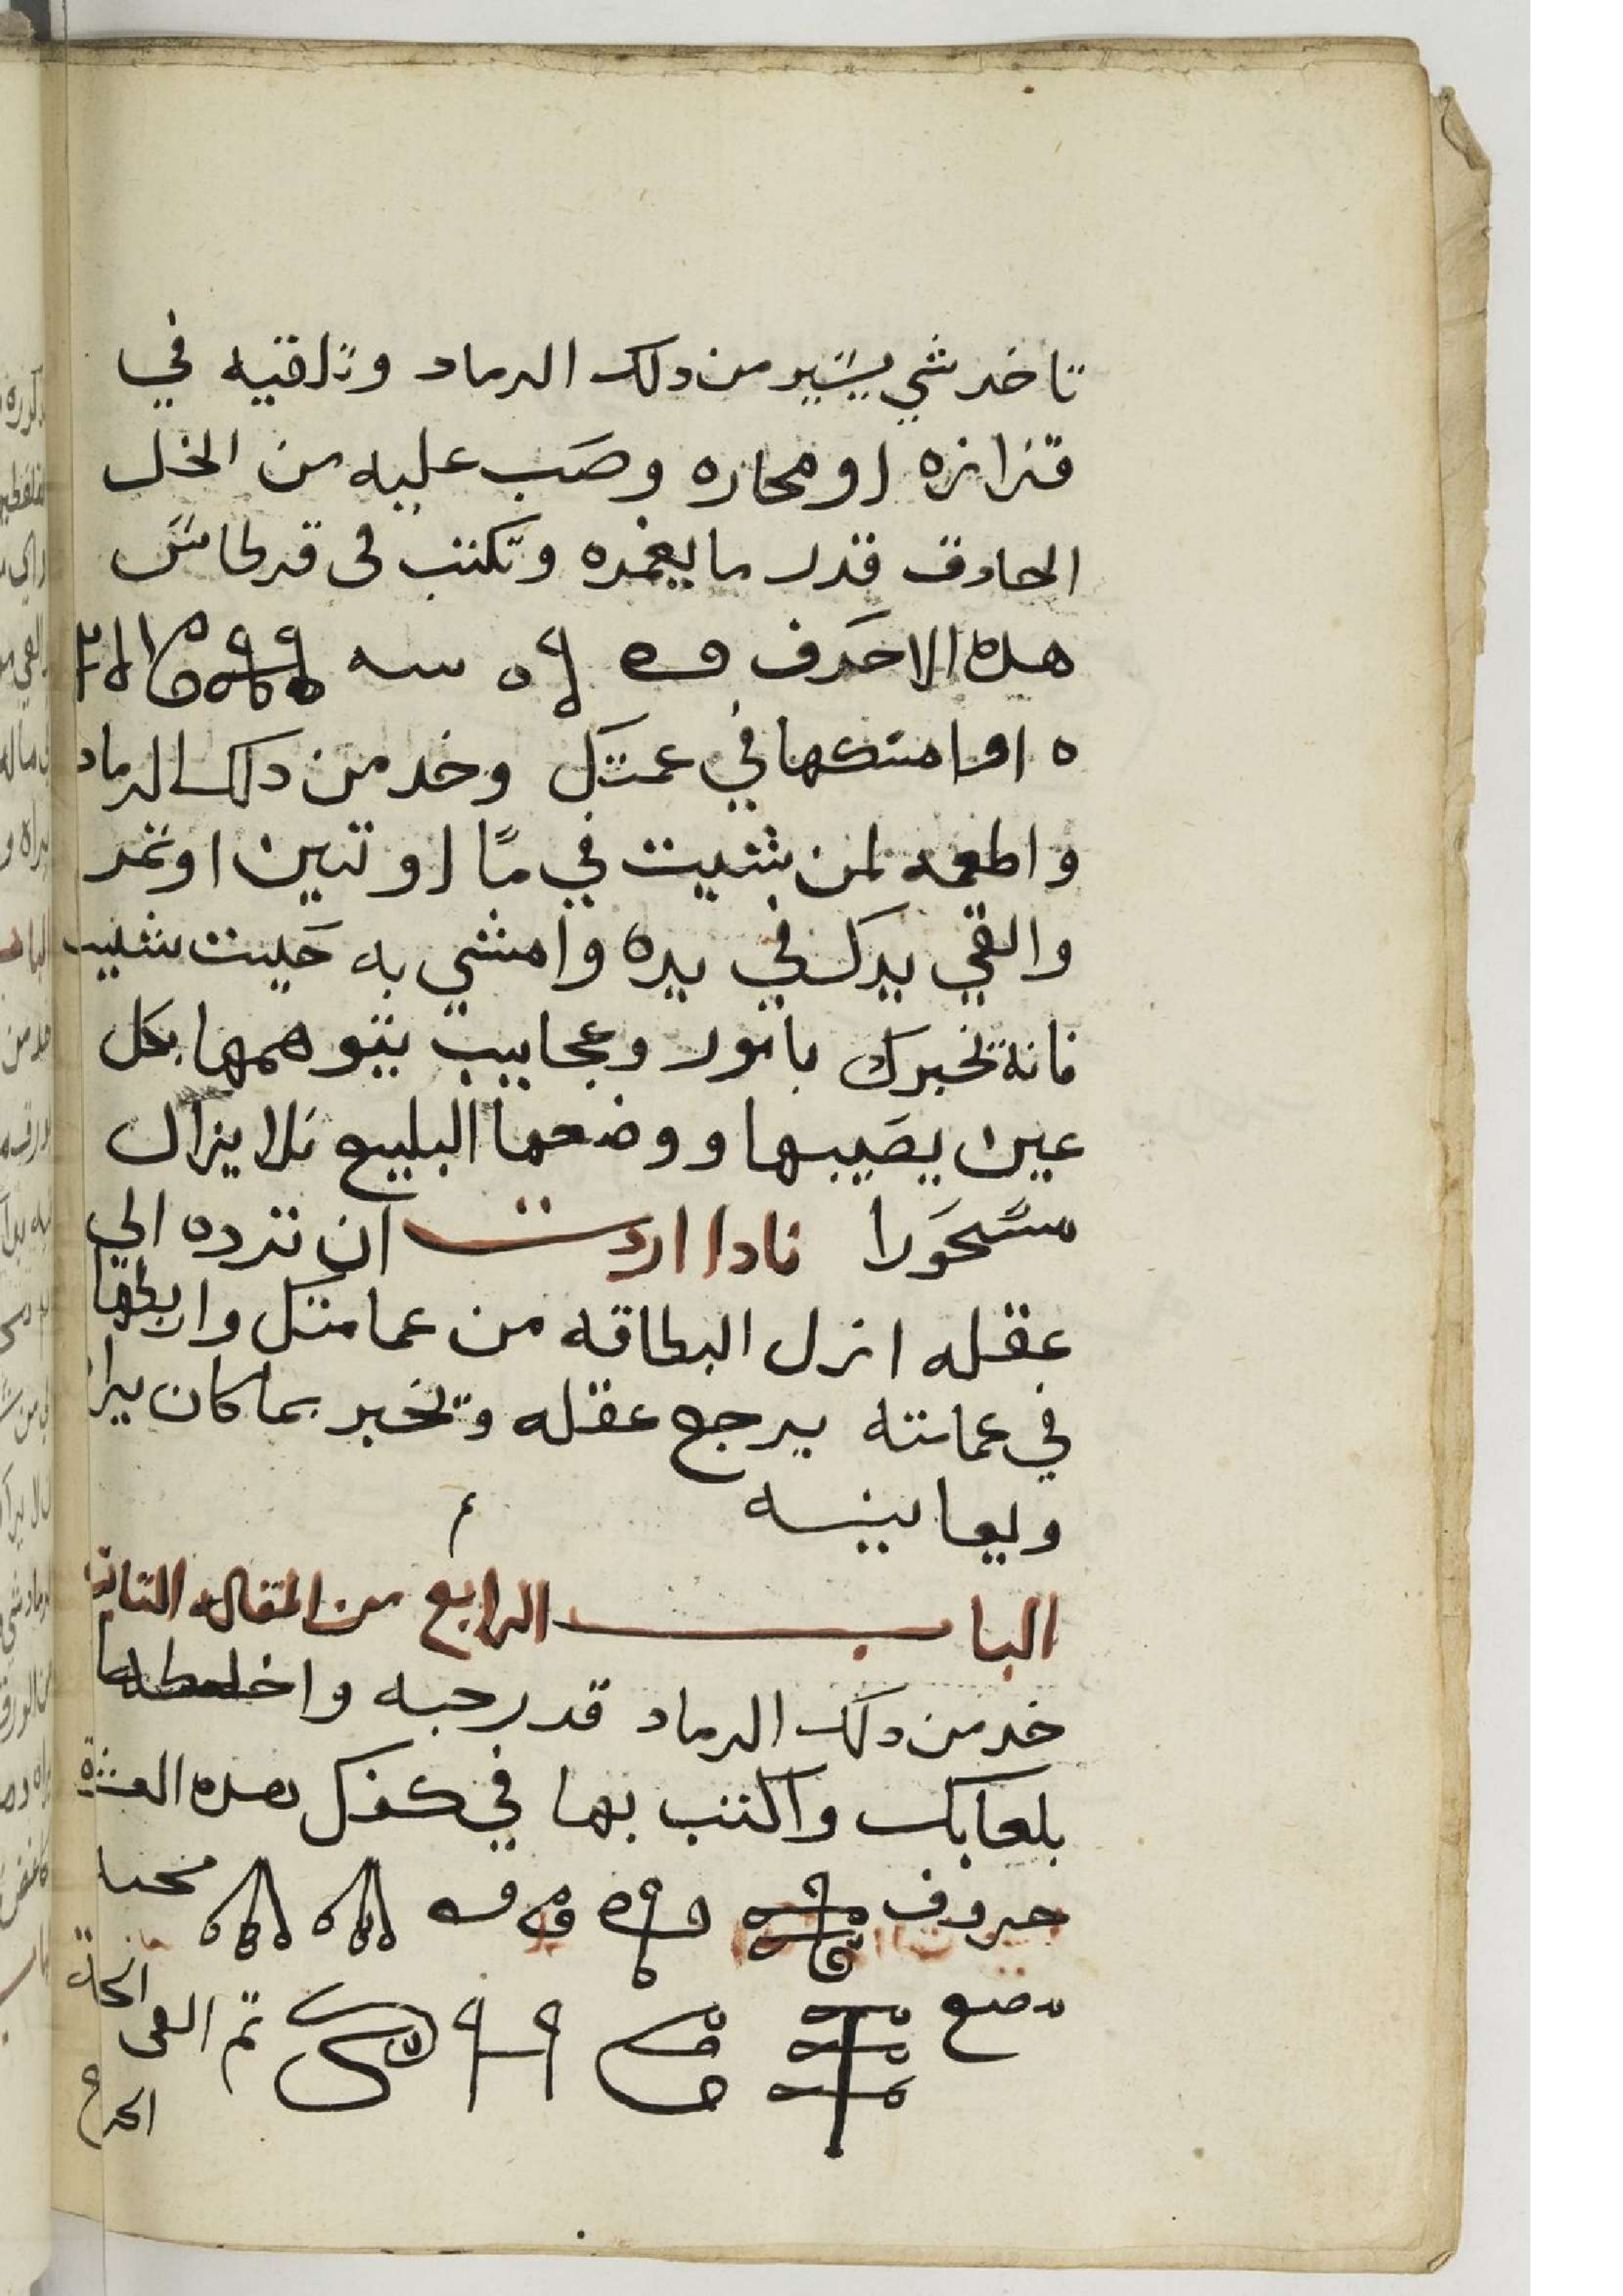 تاخد شي يسير من دلك الرماد وتلقيه في
قزازه او محاره وصب عليه من الخل
الحادق قدر ما يغمره وتكتب فى قرطاس
هده الاحرف
وامسكها في عمتك وخد من دلك الرماد
واطعمه لمن شيت في مآ او تين او تمر
والقي يدك في يده وامشي به حيت شيت
فانه يخبرك بامور وعجايب يتوهمها بكل
عين يصيبها ووضعها البليع فلا يزال
مسحورا فادا اردت ان ترده الي
عقله انزل البطاقه من عمامتك واربطها
في عمامته يرجع عقله ويخبر بما كان يراه
ويعاينه
الباب الرابع من المقاله التانيه
خد من دلك الرماد قدر حبه واخلطها
بلعابك واكتب بها في كفك هده العشرة
حروف
تم القى
الحرح